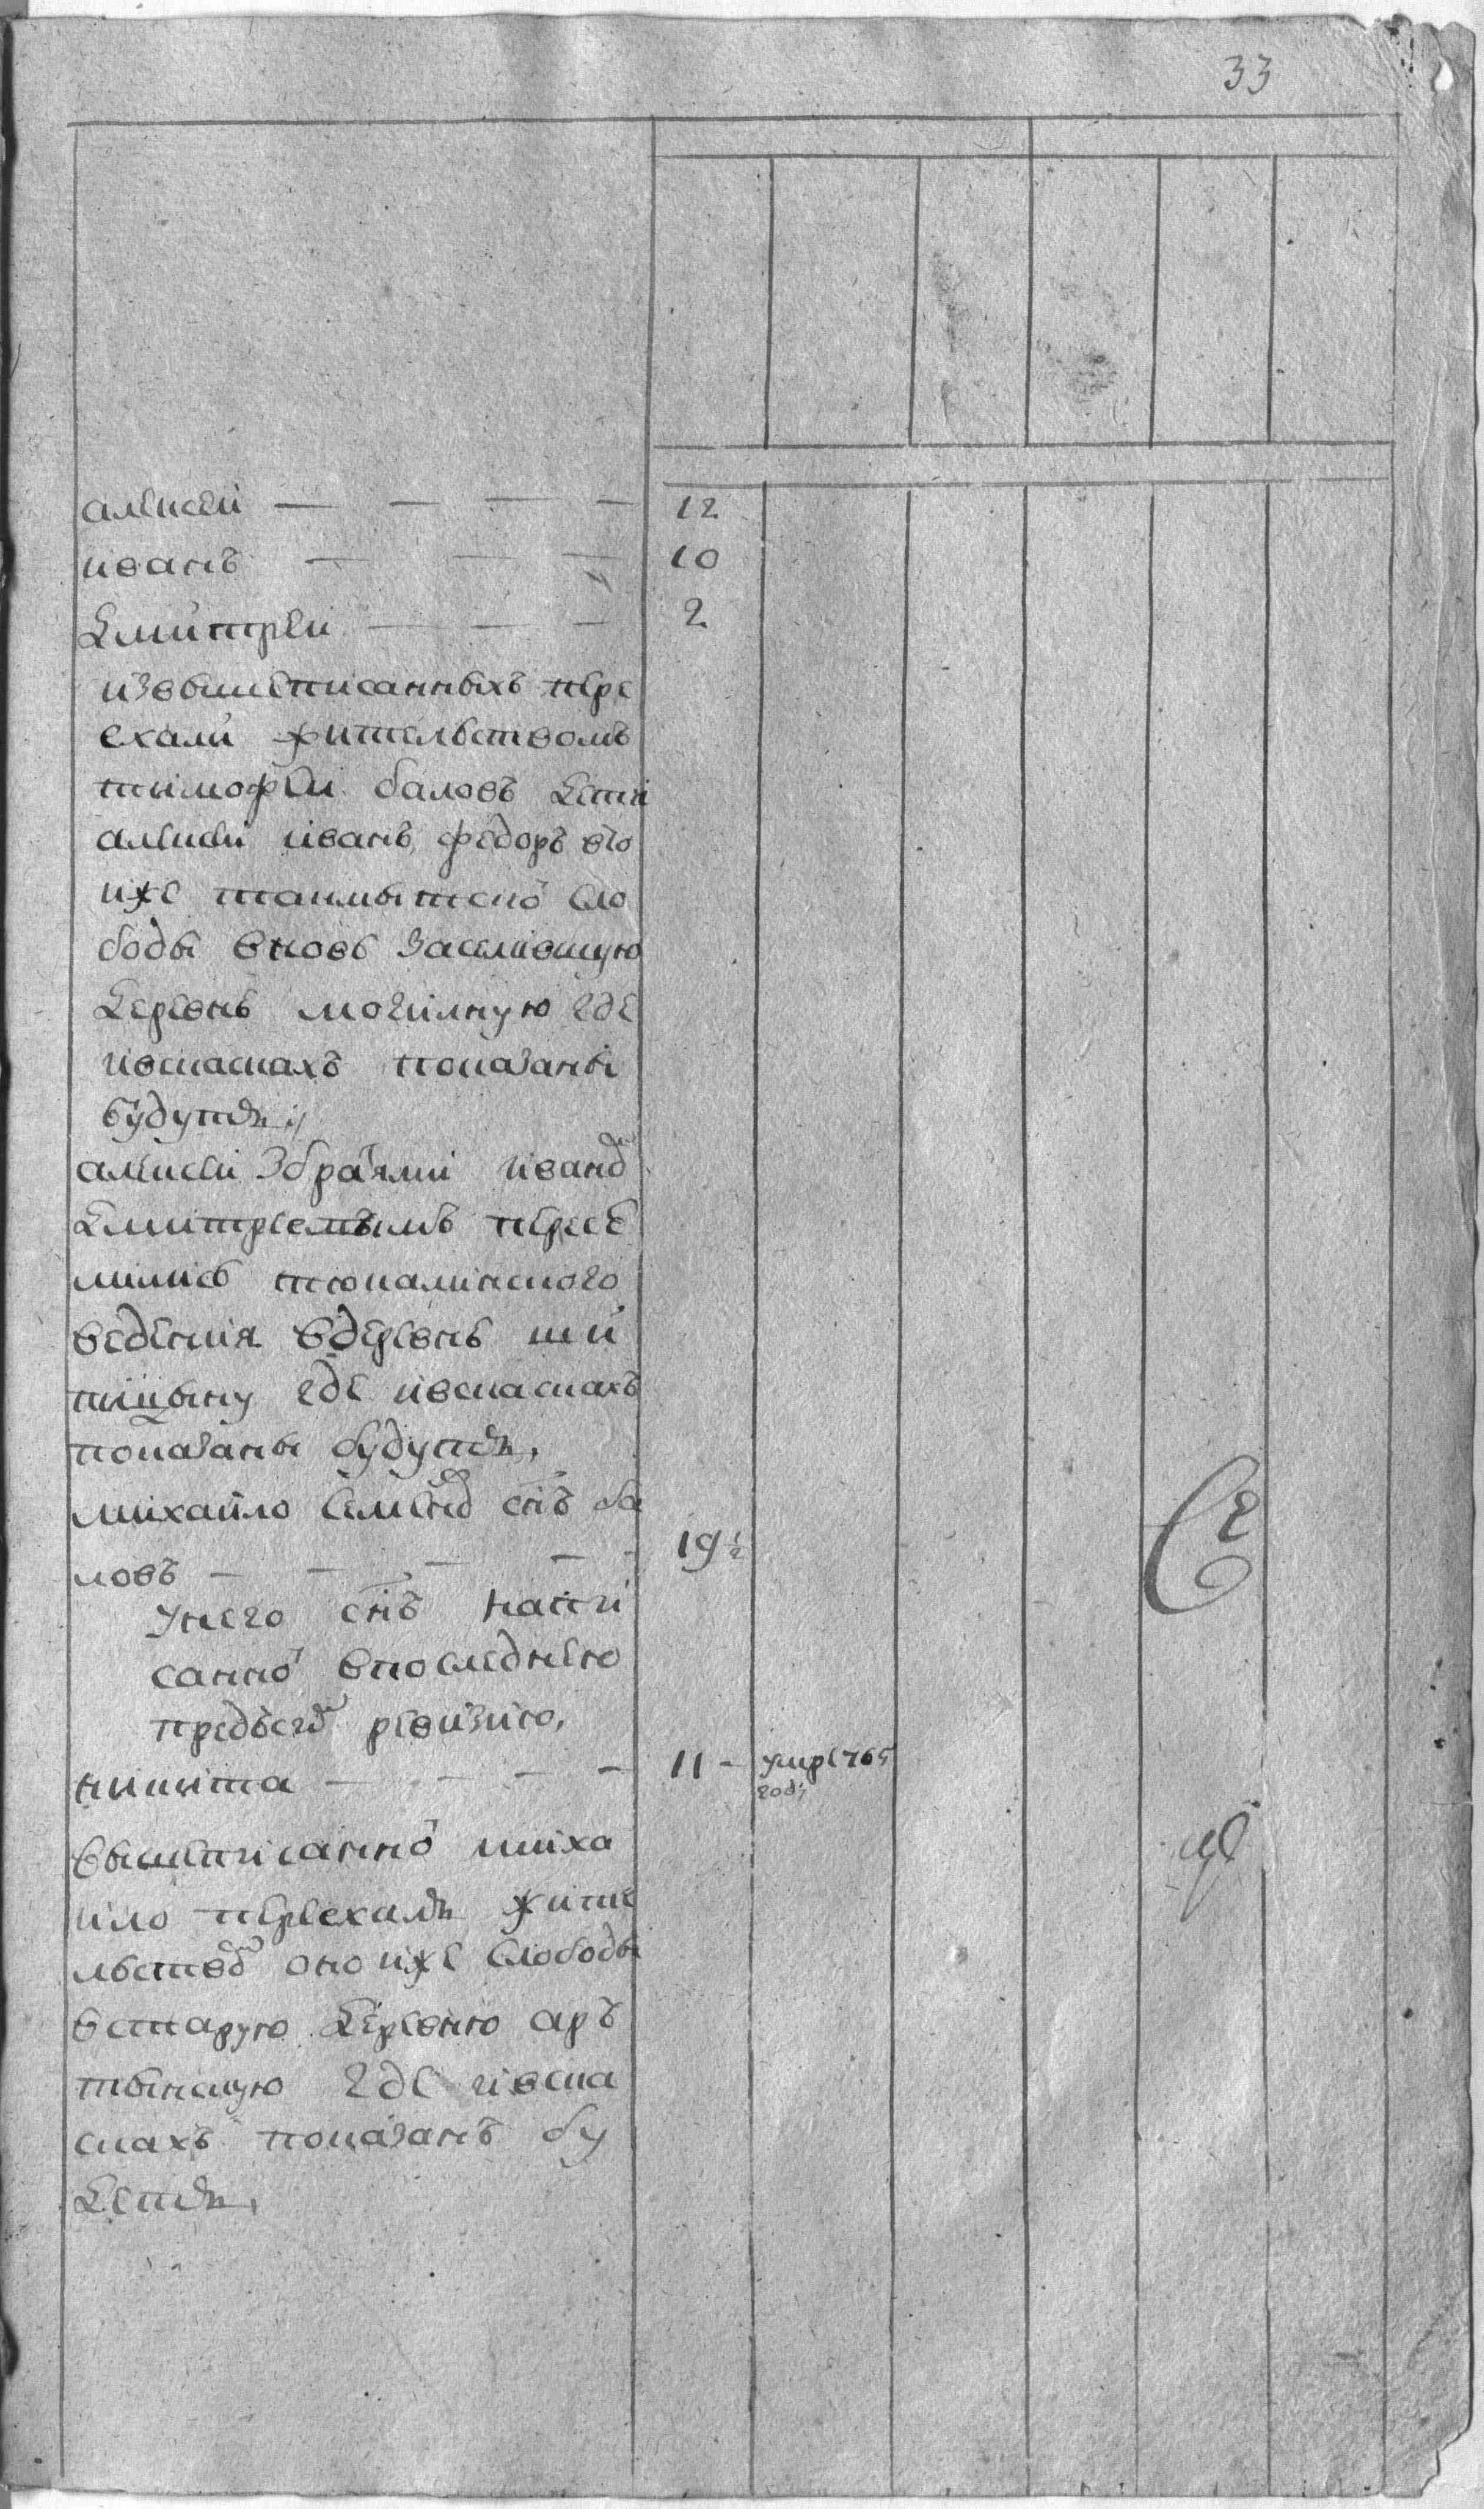 33
алексеи — — — — 12
иванъ — — — 10
дмитреи — — — 2
извышеписанныхъ пере
ехали жительствомъ
тимофеи баловъ дети
алексеи иванъ федоръ во
иже таимытско сло
боды вновь заселившую
деревнь могилную где
ивсказкахъ показаны
будутъ
алексеи збратями иваномъ
дмитреемъ пересе
лились тюкалинского
ведения вдеревнь ши
пицыну где ивсказкахъ
показаны будутъ,
михаило семеновъ снъ ба
ловъ — — — — 19 ½
Унего снъ напи
санно впоследнею
предъсего ревизию,
никита — — — — 11 – умре 765
году
вышеписанно миха
ило переехалъ жите
льствомъ оно иже слободы
встарую деревню аръ
тынскую где ивска
скахъ показанъ бу
детъ,